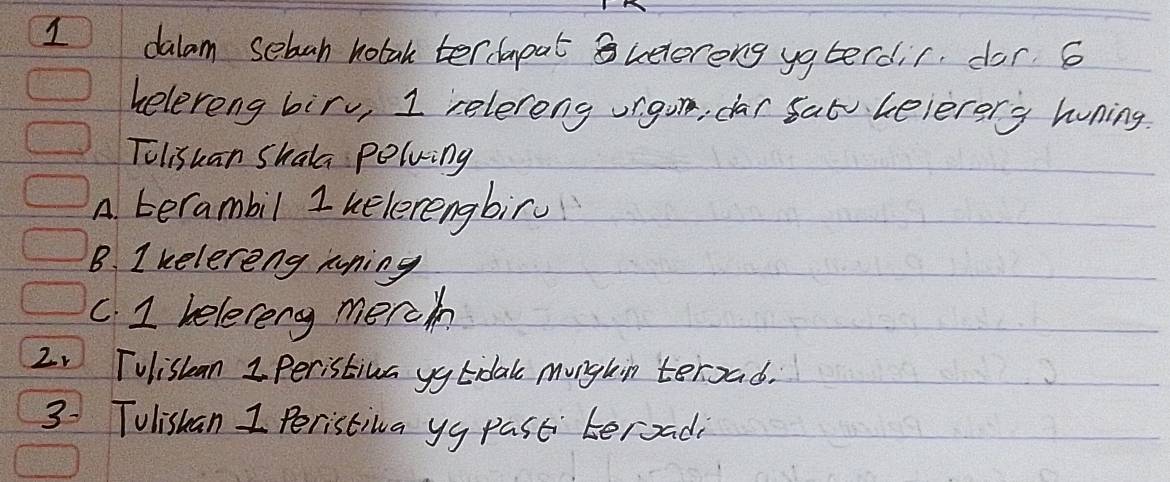 PR
1 dalam sebuah kotak terdapat 8 kelereng yg terdir. dar. 6
kelereng biru, 1 kelereng ungu, dar satu kelereng kuning.
Tuliskan skala peluang
A. terambil 1 kelereng biru
B. 1 kelereng kuning
C. 1 kelereng merah
2. Tuliskan 1 Peristiwa yg tidak mungkin terjadi
3- Tuliskan 1 Peristiwa yg pasti terjadi